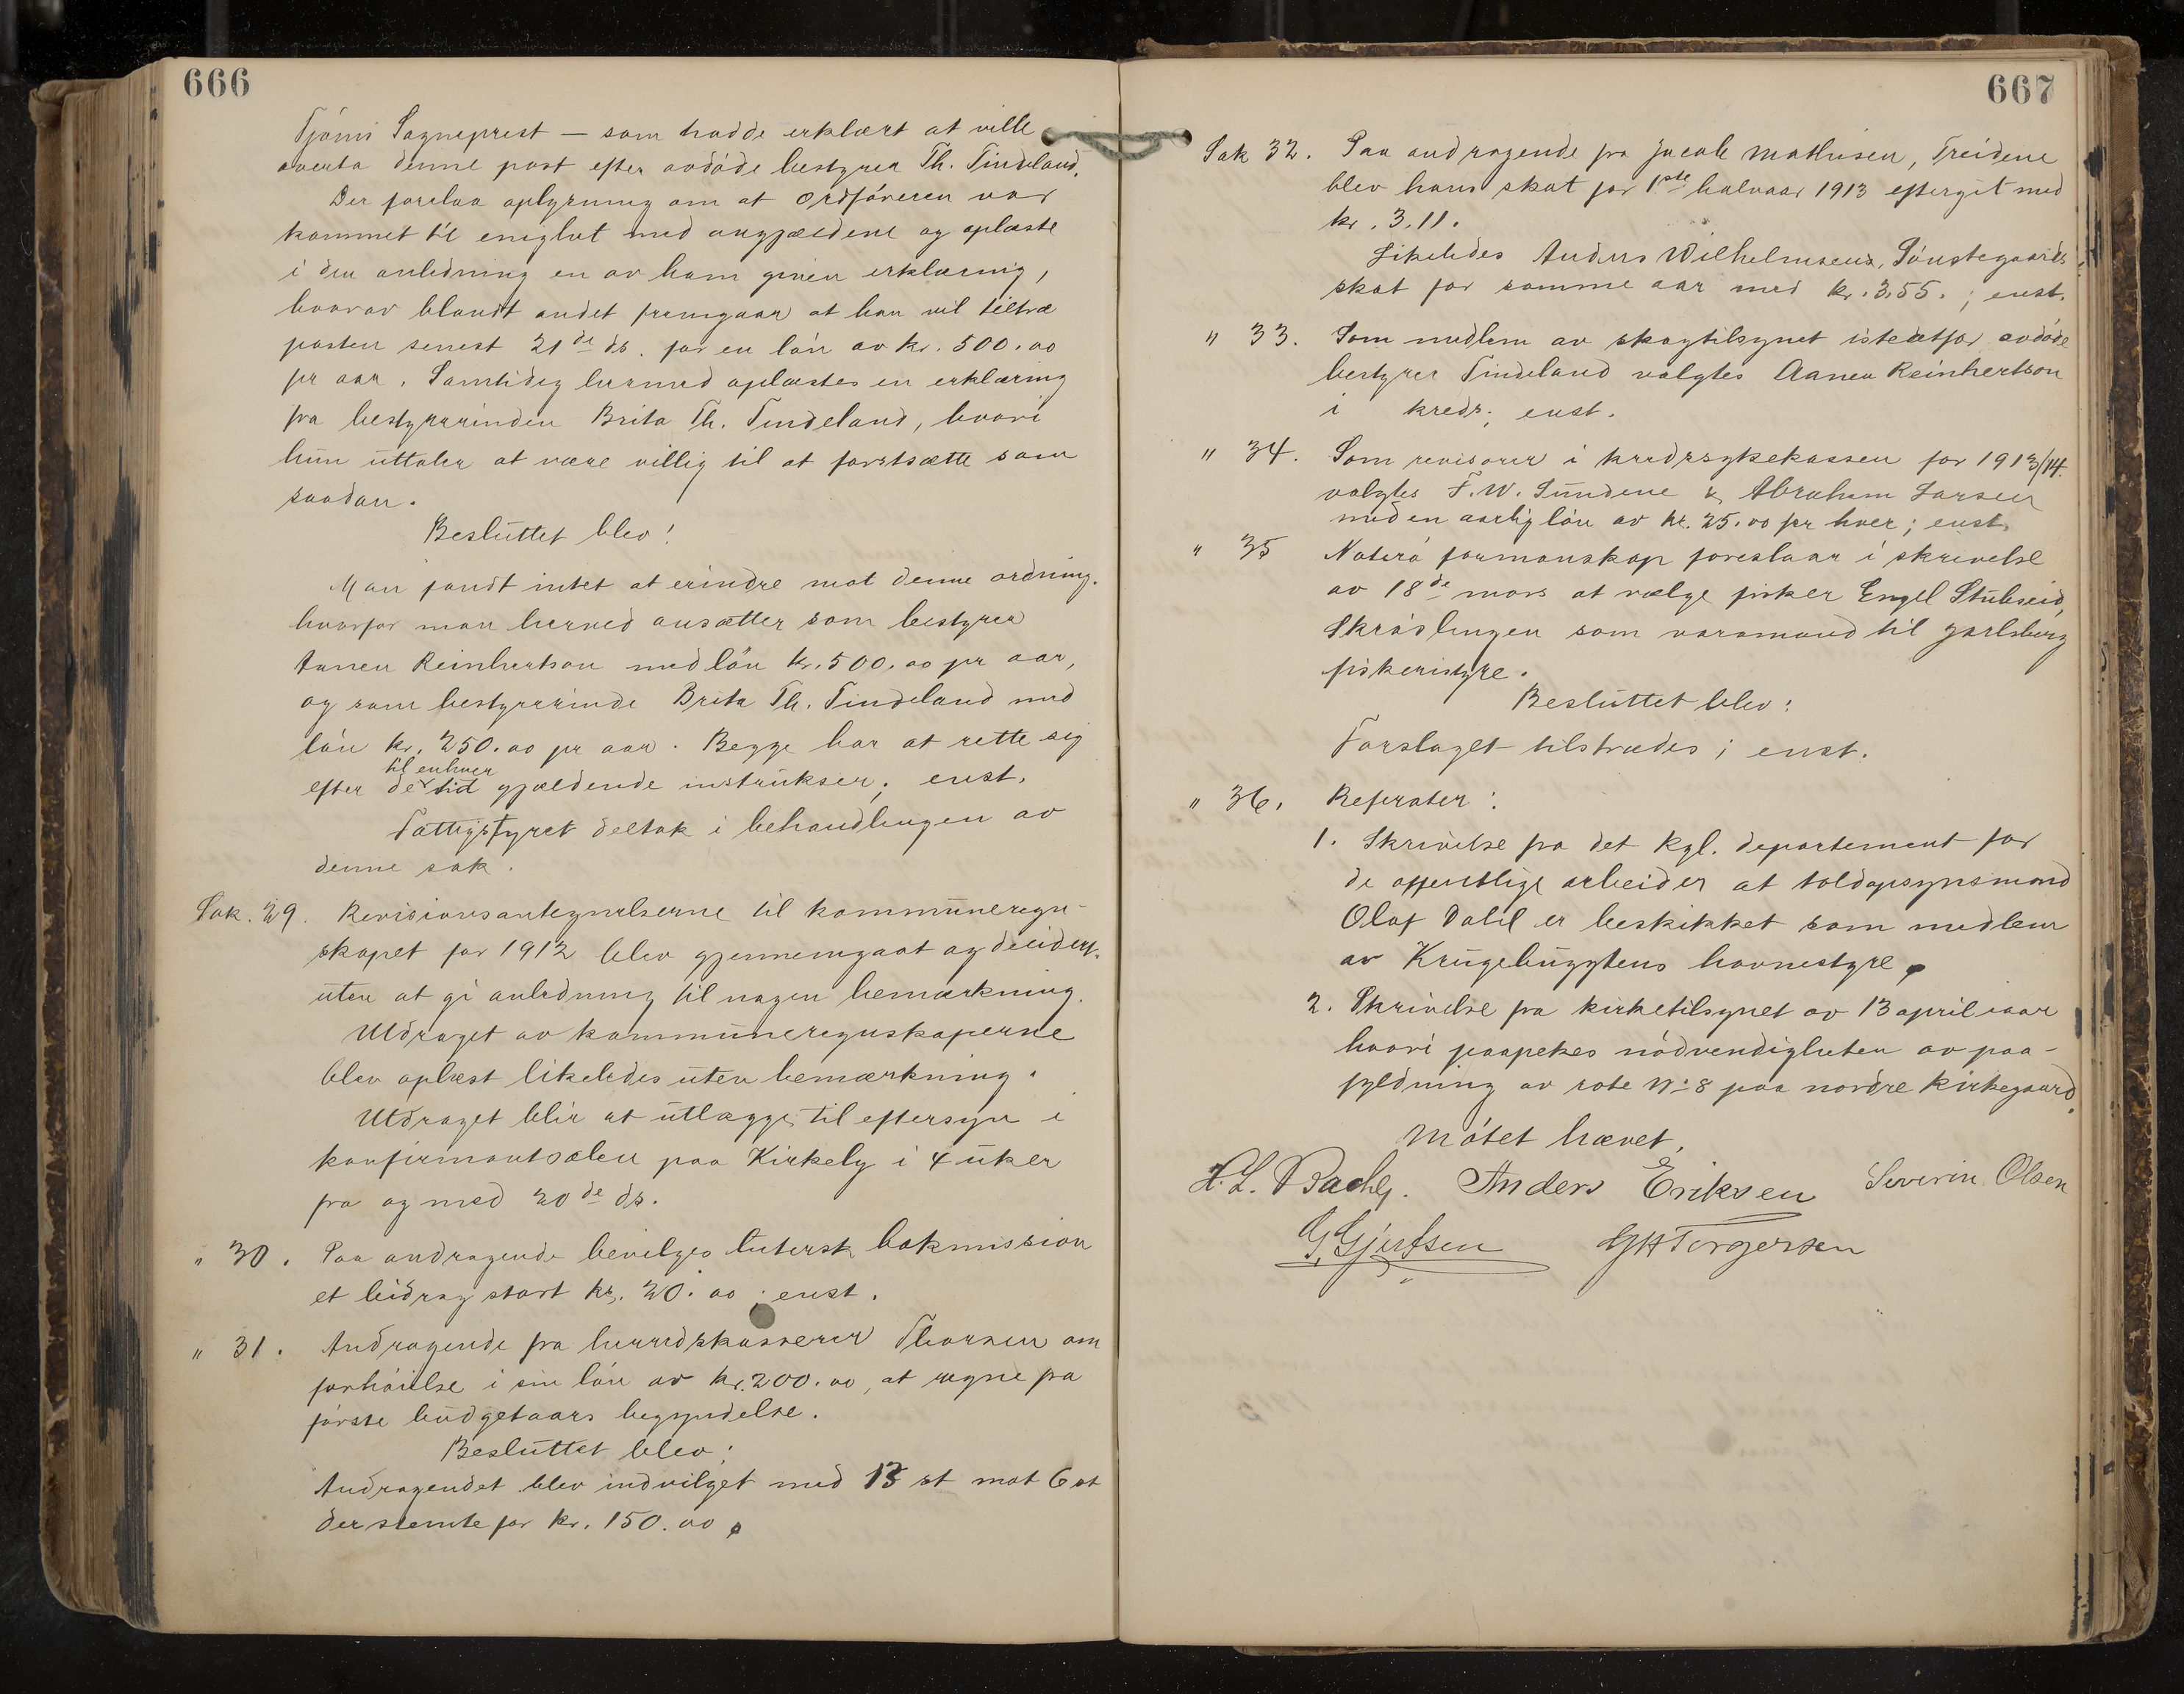 666
Tjömö Sogneprest — som hadde erklært at ville
overta denne post efter avdöde bestyrer Th. Tindeland.
Der forelaa oplysning om at ordföreren var
kommet til enighet med angjældene og oplæste
i den anledning en av ham given erklæring,
hvorav blandt andet fremgaar at han vil tiltræ
posten senest 21de ds. for en lön av kr. 500.00
pr aar. Samtidig hermed oplæstes en erklæring
fra bestyrerinden Brita Th. Tindeland, hvori
hun uttaler at være villig til at fortsætte som
saadan.
Besluttet blev:
Man fandt intet at erindre mot denne ordning.
hvorfor man herved ansætter som bestyrer
Aanen Reinhertson med lön kr. 500.00 pr aar,
og som bestyrerinde Brita Th. Tindeland med
lön kr. 250.00 pr aar. Begge har at rette sig
til enhver
efter de tid gjældende instrukser; enst.
Fattigstyret deltok i behandlingen av
denne sak.
Sak. 29. Revisionsantegnelserne til kommuneregn-
skapet for 1912 blev gjennemgaat og decidert.
uten at gi anledning til nogen bemærkning.
Utdraget av kommuneregnskaperne
blev oplæst likeledes uten bemærkning.
Utdraget blir at utlægge til eftersyn i
konfirmantsalen paa Kirkely i 4 uker
fra og med 20de ds.
" 30. Paa andragende bevilges lutersk bokmission
et bidrag stort kr. 20.00; enst.
" 31. Andragende fra herredskasserer Thorsen om
forhöielse i sin lön av kr. 200.00, at regne fra
förste budgetaars begyndelse.
Besluttet blev:
Andragendet blev indvilget med 13 st mot 6 st
der stemte for kr. 150.00.
667
Sak 32. Paa andragende fra Jacob Mathisen, Treidene
blev hans skat for 1ste halvaar 1913 eftergit med
kr. 3.11.
Likeledes Anders Wilhelmsens, Sönstegaards
skat for samme aar med kr. 3.55.; enst.
" 33. Som medlem av skogtilsynet istedetfor avdöde
bestyrer Tindeland valgtes Aanen Reinhertson
i kreds; enst.
" 34. Som revisorer i kredssykekassen for 1913/14.
valgtes F. W. Sundene & Abraham Larsen
med en aarlig lön av kr. 25.00 pr hver; enst.
" 35 Nøterö formanskap foreslaar i skrivelse
av 18de mars at vælge fisker Engel Stubseid,
Skrödlingen som varamand til Jarlsberg
fiskeristyre.
Besluttet blev:
Forslaget tilstrædes; enst.
" 36. Referater:
1. Skrivelse fra det kgl. departement for
de offentlige arbeider at toldopsynsmand
Olaf Dahl er beskikket som medlem
av Krugebuggtens havnestyre.
2. Skrivelse fra kirketilsynet av 13 april iaar
hvori paapekes nödvendigheten av paa-
fyldning av rote No 8 paa nordre kirkegaard.
Mötet hævet.
H. L. Bache. Anders Eriksen Severin Olsen
G. Gjertsen G H Torgersen